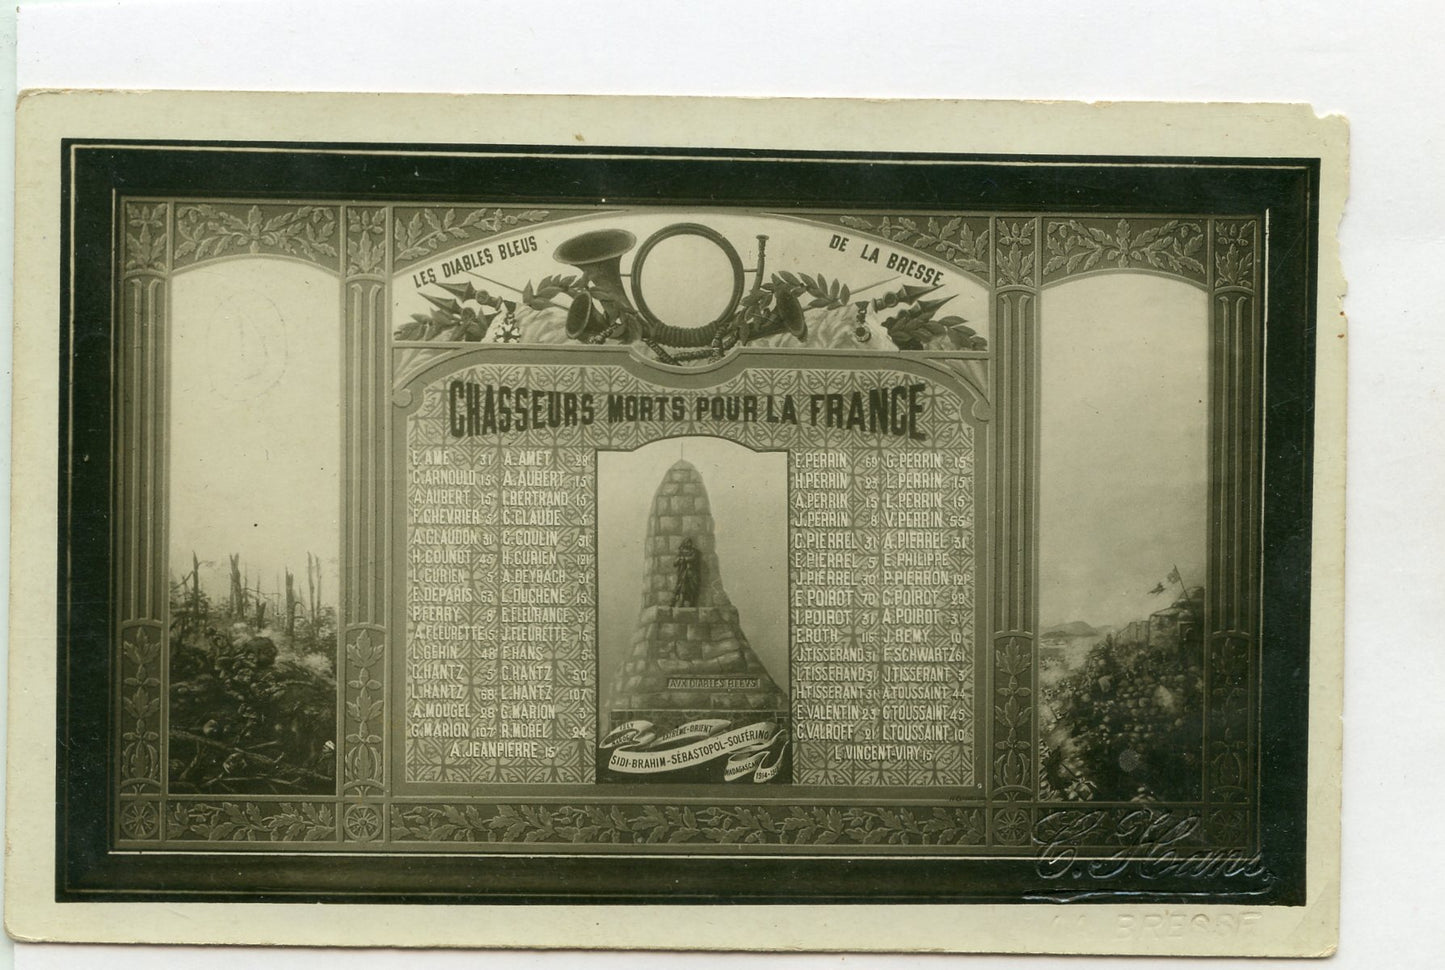 LES DIABLES BLEUS
DE LA BRESSE
CHASSEURS MORTS POUR LA FRANCE
E. AME 31 A. AMET 28
C. ARNOULD 15 A. AUBERT 15
A. AUBERT 15 I. BERTRAND 15
F. CHEVRIER 5 C. CLAUDE 5
A. CLAUDON 31 C. COULIN 31
H. COUNOT 45 H. CURIEN 121
L. CURIEN 5 A. DEYBACH 31
E. DEPARIS 53 L. DUCHENE 15
P. FERRY 8 E. FLEURANCE 31
A. FLEURETTE 5 J. FLEURETTE 15
L. GEHIN 48 F. HANS 5
C. HANTZ 5 C. HANTZ 50
L. HANTZ 68 L. HANTZ 107
A. MOUGEL 28 C. MARION 3
G. MARION 107 R. MOREL 24
A. JEANPIERRE 15
E. PERRIN 69 G. PERRIN 15
H. PERRIN 23 L. PERRIN 15
A. PERRIN 15 L. PERRIN 15
J. PERRIN 8 V. PERRIN 55
C. PIERREL 31 A. PIERREL 31
E. PIERREL 5 E. PHILIPPE
J. PIERREL 30 P. PIERRON 121
E. POIROT 70 C. POIROT 28
I. POIROT 31 A. POIROT 31
E. ROTH 115 J. REMY 10
J. TISSERAND 31 F. SCHWARTZ 61
L. TISSERAND 31 J. TISSERANT 3
H. TISSERANT 31 A. TOUSSAINT 44
E. VALENTIN 23 G. TOUSSAINT 45
C. VALROFF 21 L. TOUSSAINT 10
L. VINCENT-VIRY 15
AUX DIABLES BLEUS
EXTRÊME-ORIENT
SIDI-BRAHIM-SÉBASTOPOL-SOLFÉRINO
MADAGASCAR
C. Hans.
LA BRESSE